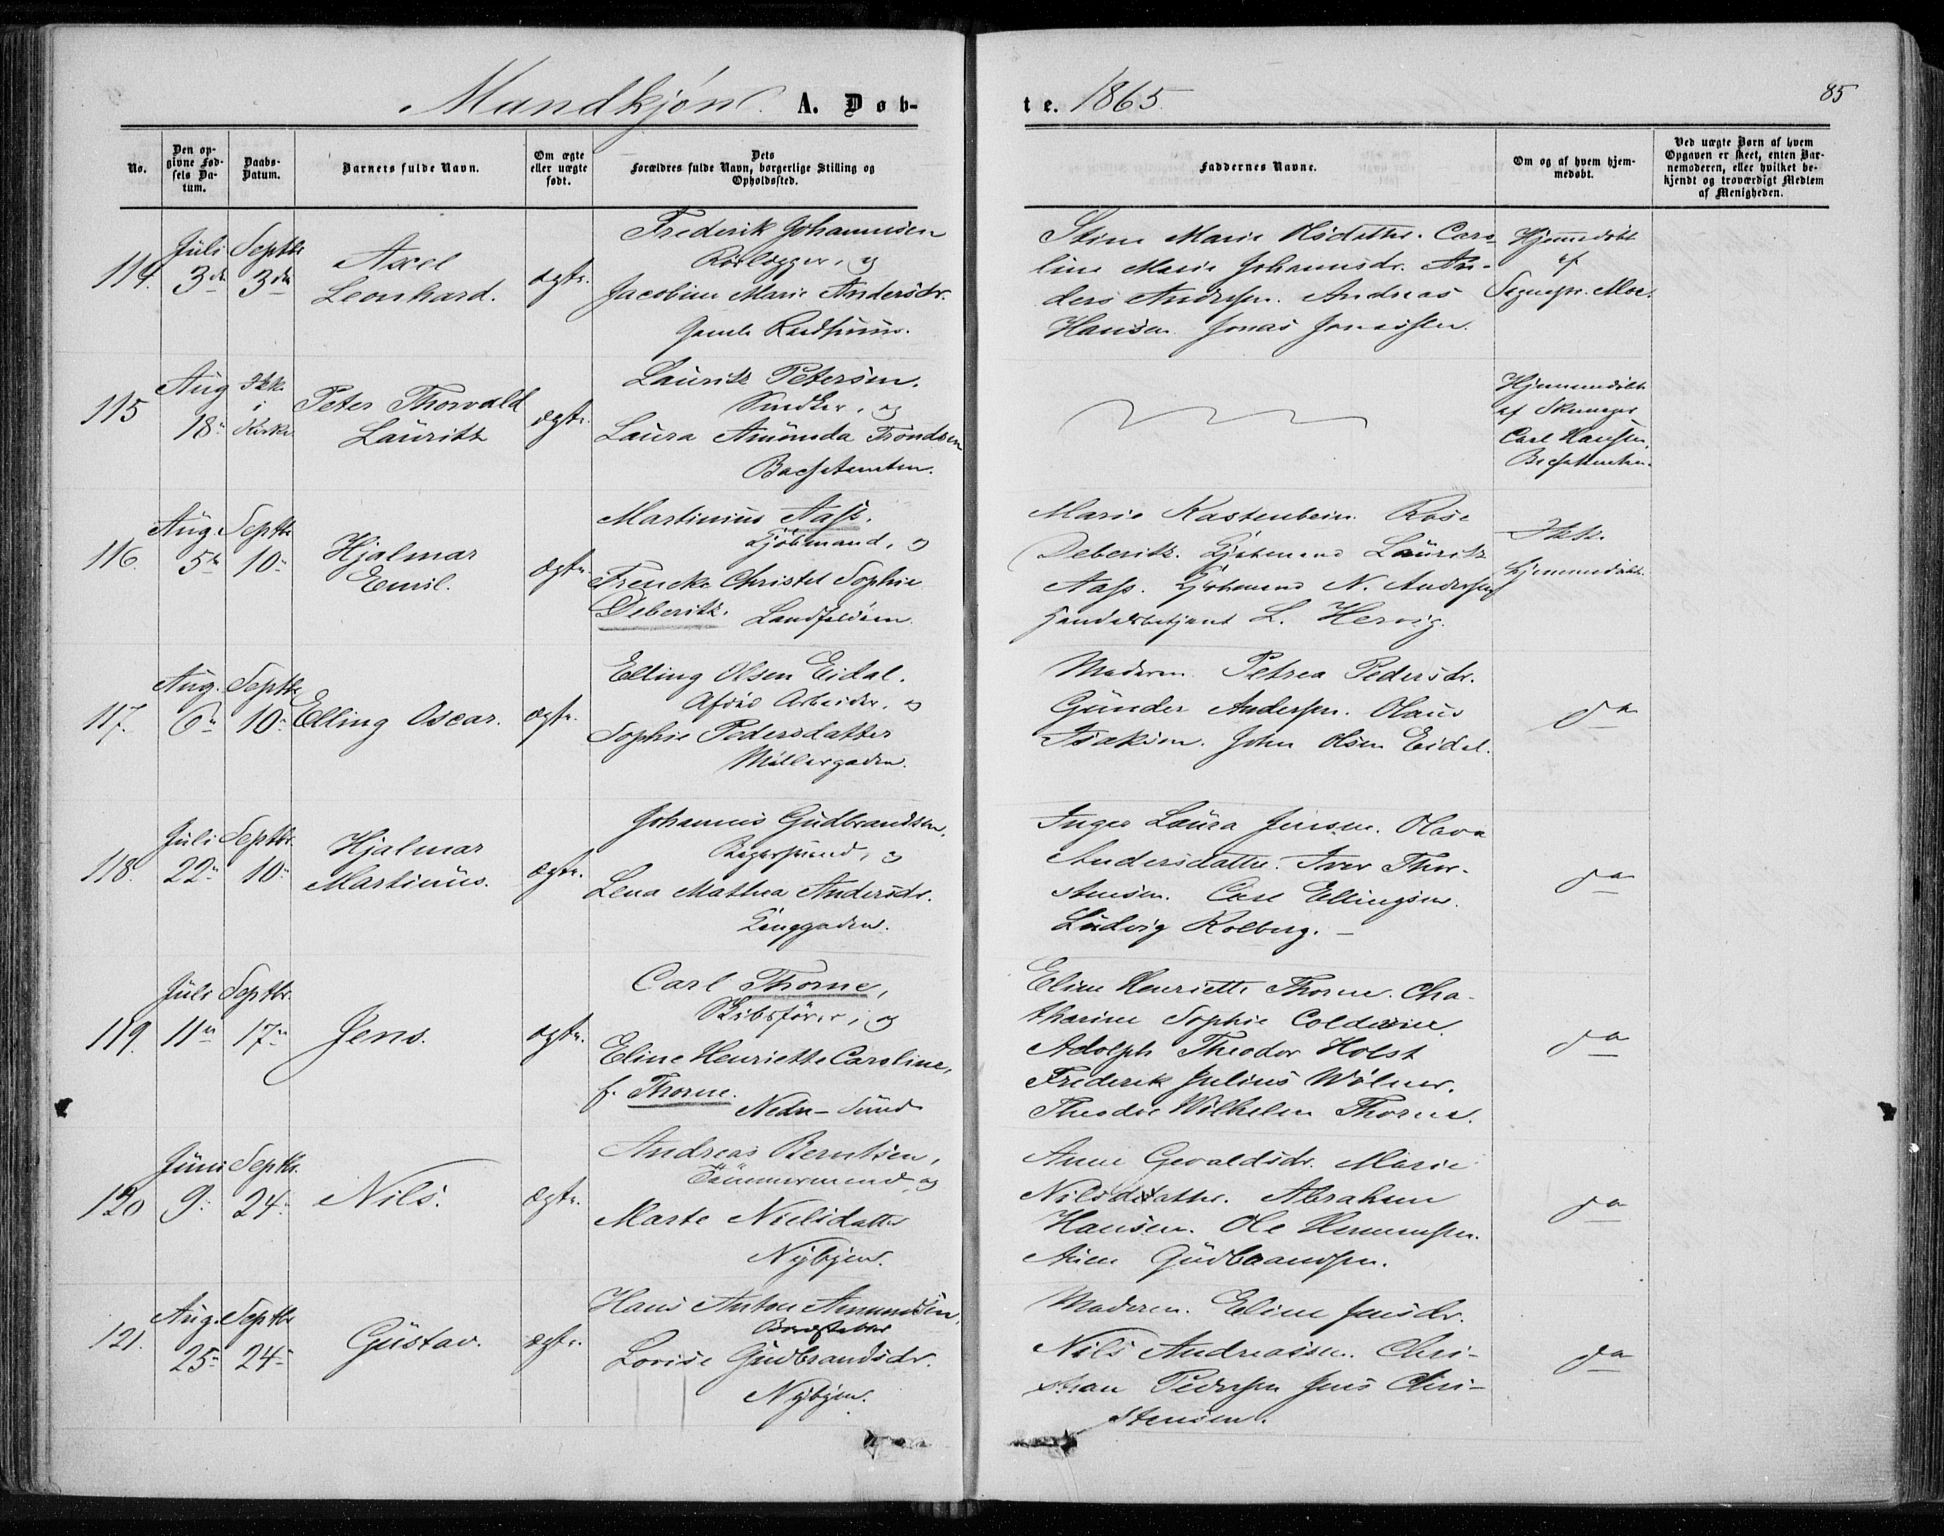 Mandkjøn. A. Døb-
te. 1865.
85
No.
Den op-
givne Fød-
sels Da-
tum.
Daabs-
Datum.
Barnets fulde Navn.
Om ægte
eller uægte
født.
Dets
Forældres fulde Navn, borgerlige Stilling og
Opholdssted.
Faddernes Navne.
Om og af hvem hjem-
medøbt.
Ved uægte Børn af hvem
Opgaven er skeet, enten Bar-
nemoderen, eller hvilket be-
kjendt og troværdigt Medlem
af Menigheden.
114.
Juli
3de
Septbr
3die
Axel
Leonhard.
ægte.
Frederik Johannesen
Rørlægger, og
Jacobine Marie Andersdr.
Gamle
Stine Marie Olsdatter. Caro-
line Marie Johannsdr. An-
ders Andersen. Andreas
Hansen. Jonas Jonassen.
Hjemmedøbt
af
Sognepr. Moe.
115
Aug
18
Ikke
i
Kirke
Peter Thorvald
Lauritz
ægte.
Lauritz Petersen.
Snedker, og
Laura Amunda Trondsen
Hjemmedøbt
af
Carl Hansen,
116.
Aug.
5te
Septbr
10
Hjalmar
Emil.
ægte.
Martinius Aass.
Kjøbmand, og
Christel Sophie
Deberitz.
Marie Kastenbein. Rose
Deberitz. Kjøbmand Lauritz
Aass. Kjøbmand N. Andersen
Handelsbetjent L. Hervig.
Ikke
hjemmedøbt.
117.
Aug.
6te
Septbr
10
Elling Oscar.
ægte.
Elling Olsen Eidal.
Arbeider, og
Sophie Pedersdatter
Møllergaden.
Moderen Petrea Pedersdr.
Gunder Andersen. Olaus
Isaksen. John Olsen Eidal.
do
118.
Juli
22
Septbr.
10
Hjalmar
Martinus.
ægte.
Johannes Gudbrandsen,
Bagersvend, og
Lena Mathea Andersdr.
Langgaden.
Inger Laura Jensen. Olava
Andersdatter. Iver Thor-
stensen. Carl Ellingsen.
Ludvig Kolberg.
do
119.
Juli
11
Septbr.
17
Jens.
ægte.
Carl Thorne,
Skibsfører, og
Eline Henriette Caroline,
f. Thorne.
Nedre Sund
Eline Henriette Thorne. Cha-
tharine Sophie Coldevin.
Adolph Theodor Holst
Frederik Julius Wølner.
Theodor Wilhelm Thorne.
do
120
Juni
9
Septbr.
24
Nils.
ægte.
Andreas Berntsen,
Tømmermand, og
Marte Nielsdatter
Nybyen.
Anne Gevaldsdr. Marie
Nilsdatter. Abraham
Hansen. Ole Hermansen.
Gudbrandsen.
do
121.
Aug.
25
Septbr
24
Gustav.
ægte.
Hans Anton Amundsen,
Lovise Gudbrandsdr.
Nybyen.
Moderen. Eline Jensdr.
Nils Andreassen. Chri-
stian Pedersen Jens Chri-
stensen.
do